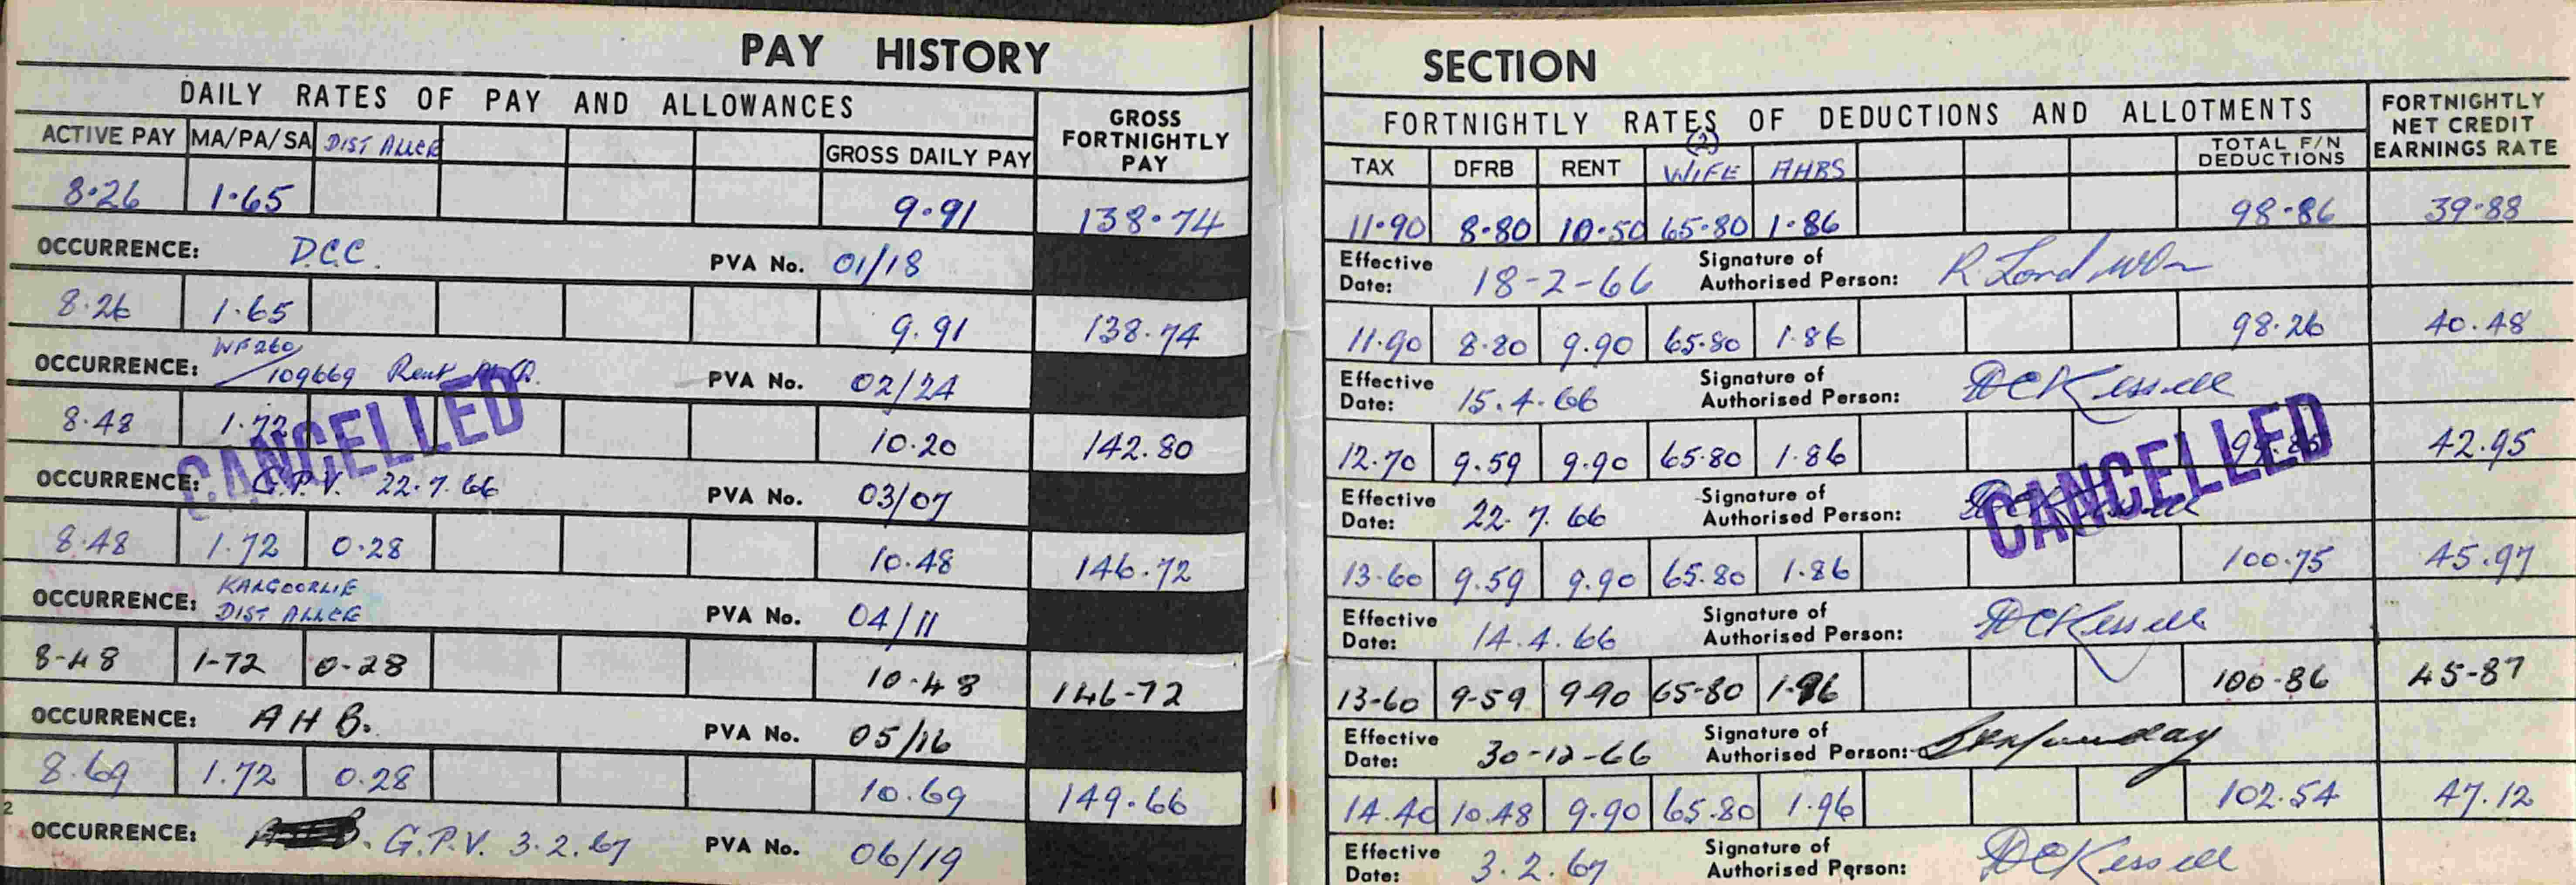 PAY HISTORY SECTION
DAILY RATES OF PAY AND ALLOWANCES
ACTIVE PAY MA/PA/SA DIST ALLCE GROSS DAILY PAY GROSS FORTNIGHTLY PAY
8.26 1.65 9.91 138.74
OCCURRENCE: D.C.C. PVA No. 01/18
8.26 1.65 9.91 138.74
OCCURRENCE: WF260/109669 Rent PVA No. 02/24
8.48 1.72 10.20 142.80
CANCELLED
OCCURRENCE: G.P.V. 22.7.66 PVA No. 03/07
8.48 1.72 0.28 10.48 146.72
OCCURRENCE: KALGOORLIE DIST ALLCE PVA No. 04/11
8-48 1-72 0-28 10-48 146-72
OCCURRENCE: A H B. PVA No. 05/16
8.69 1.72 0.28 10.69 149.66
2
OCCURRENCE: G.P.V. 3.2.67 PVA No. 06/19
FORTNIGHTLY RATES OF DEDUCTIONS AND ALLOTMENTS
(2)
TAX DFRB RENT WIFE AHBS TOTAL F/N DEDUCTIONS FORTNIGHTLY NET CREDIT EARNINGS RATE
11.90 8.80 10.50 65.80 1.86 98.86 39.88
Effective Date: 18-2-66 Signature of Authorised Person: R Lord
11.90 8.80 9.90 65.80 1.86 98.26 40.48
Effective Date: 15.4.66 Signature of Authorised Person: DCKessell
12.70 9.59 9.90 65.80 1.86 42.95
CANCELLED
Effective Date: 22.7.66 Signature of Authorised Person:
13.60 9.59 9.90 65.80 1.86 100.75 45.97
Effective Date: 14.4.66 Signature of Authorised Person: DCKessell
13-60 9-59 9-90 65-80 1-96 100-86 45-87
Effective Date: 30-12-66 Signature of Authorised Person:
14.40 10.48 9.90 65.80 1.96 102.54 47.12
Effective Date: 3.2.67 Signature of Authorised Person: DCKessell